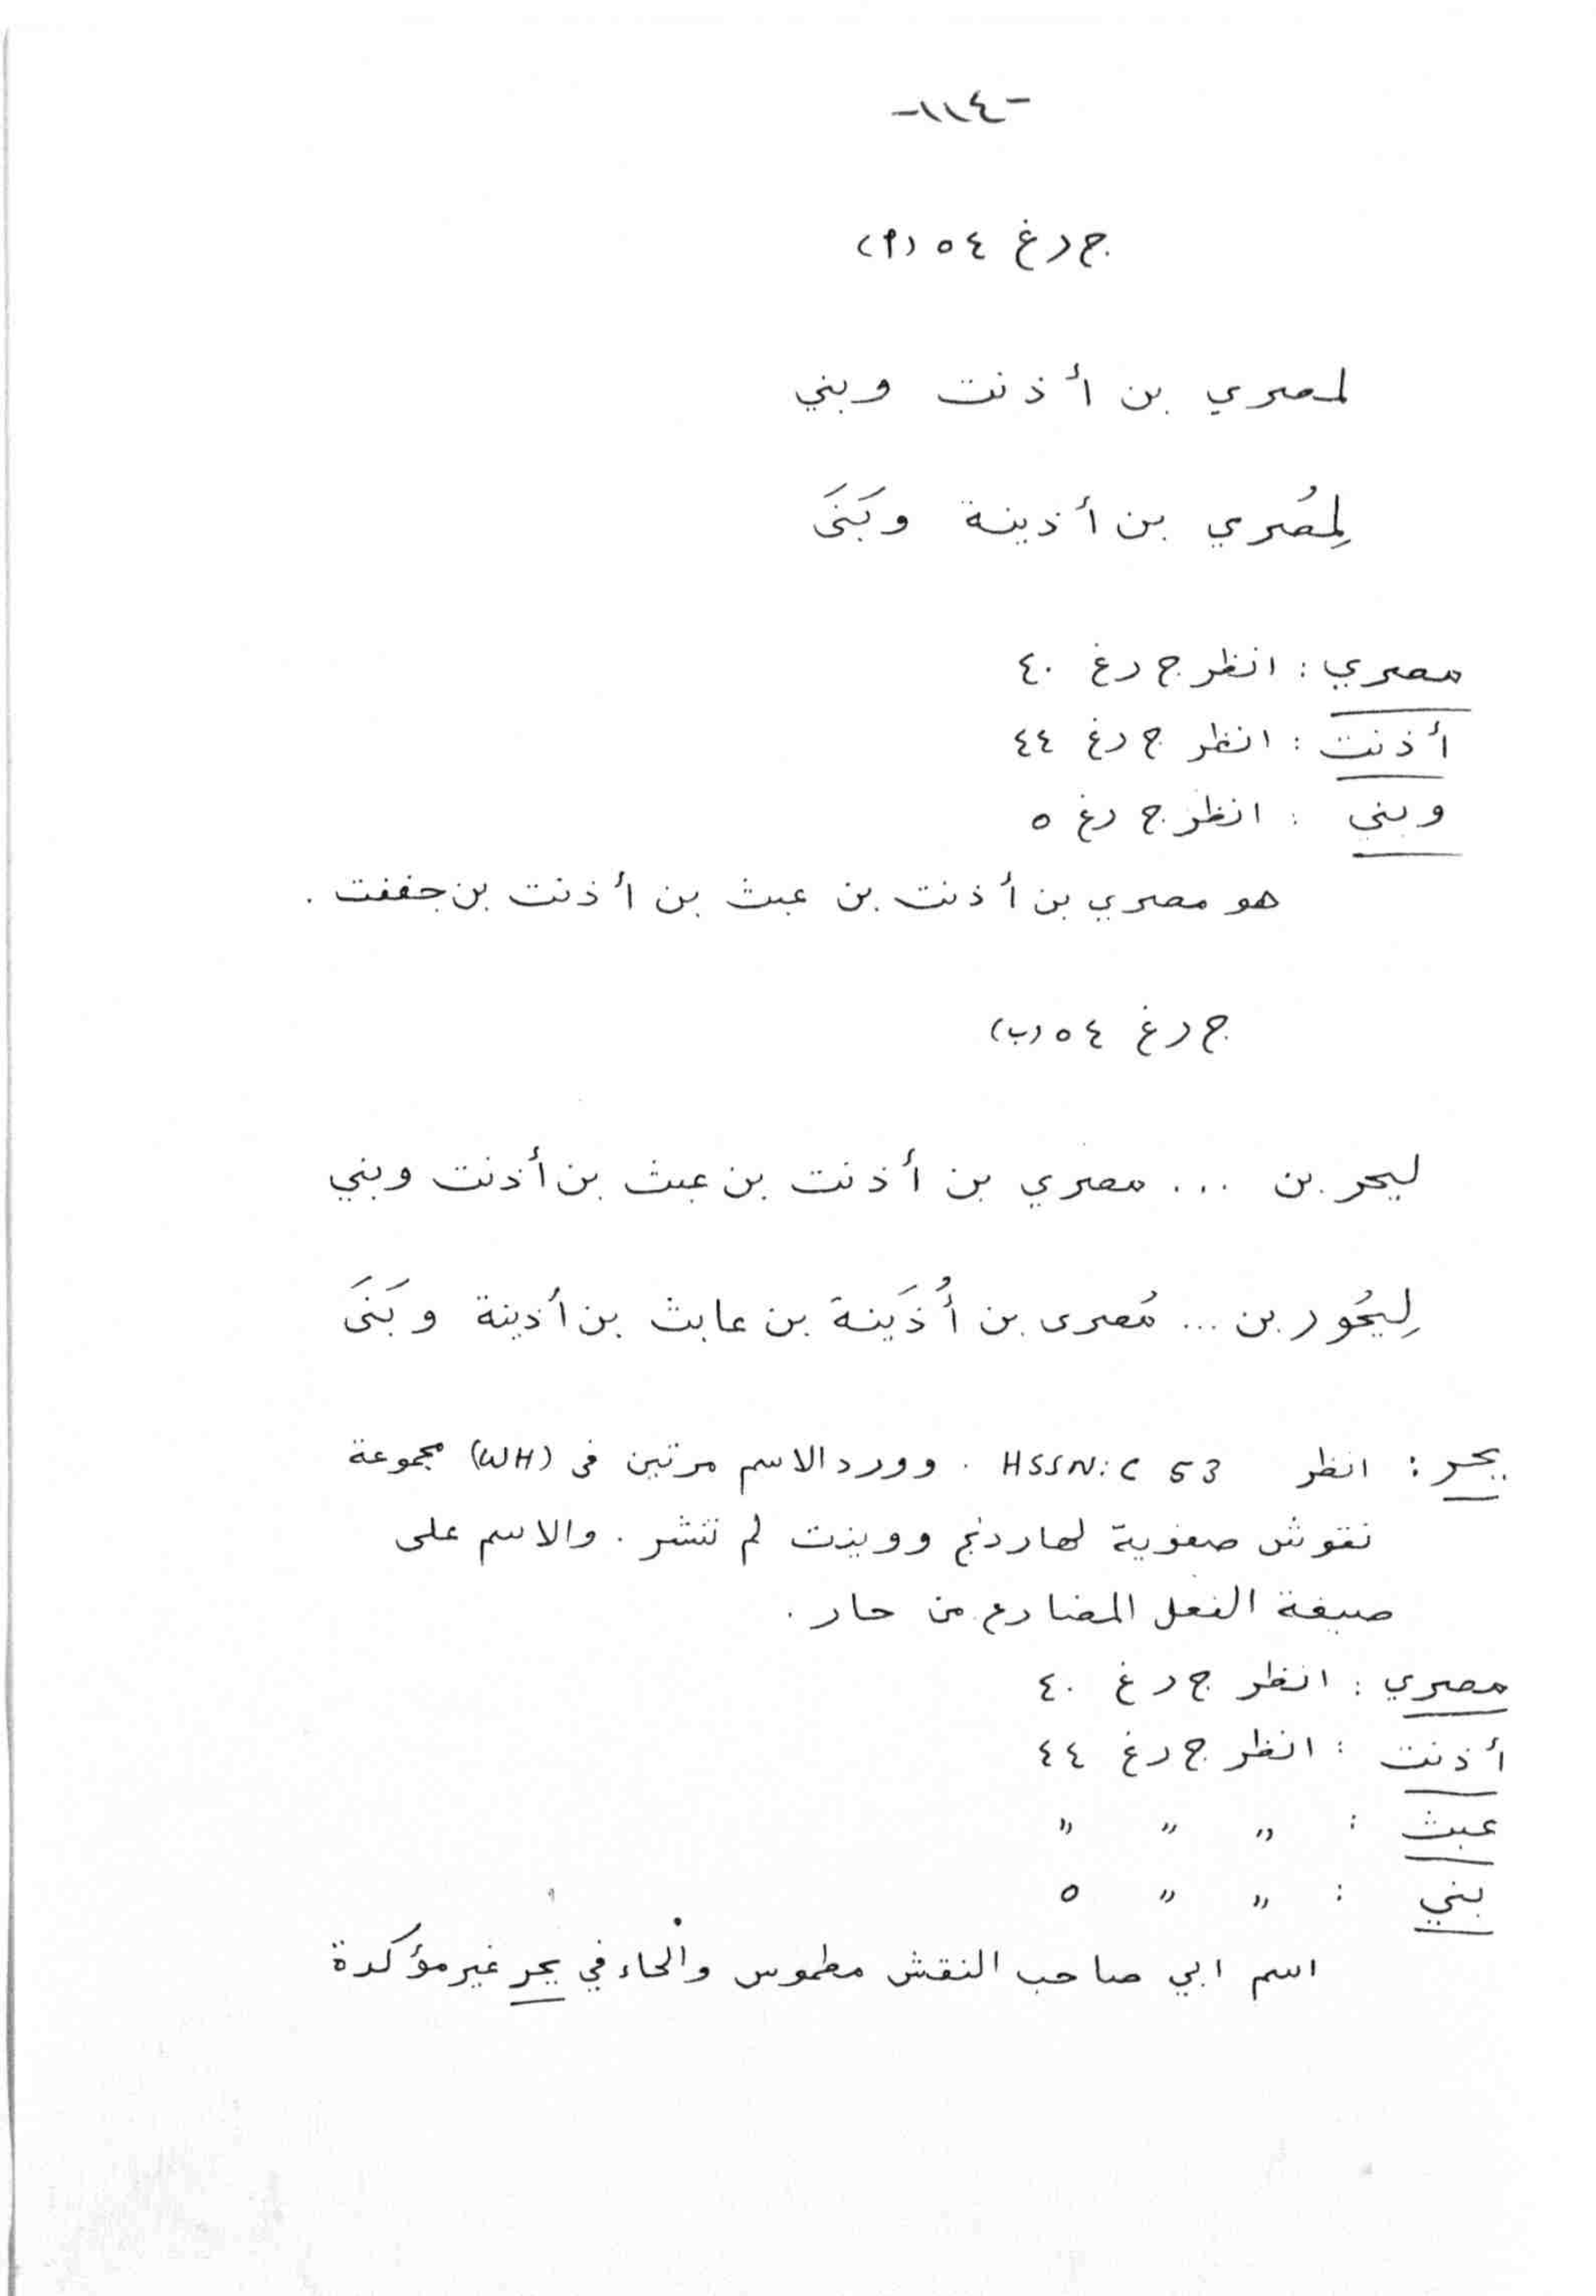 -١١٤-
ج ر غ ٥٤ (أ)
لمصري بن أذنت وبني
لِمُصري بن أذينة وبَنَى
مصري : انظر ج ر غ ٤٠
أذنت : انظر ج ر غ ٤٤
وبني : انظر ج ر غ ٥
هو مصري بن أذنت بن عبث بن أذنت بن جففت .
ج ر غ ٥٤ (ب)
ليحر بن ... مصري بن أذنت بن عبث بن أذنت وبني
لِيحُور بن ... مُصرى بن أُذَينة بن عابث بن أذينة وبَنَى
يحر : انظر HSSN: C 53 . وورد الاسم مرتين في (WH) مجموعة
نقوش صفوية لهاردنج ووينت لم تنشر . والاسم على
صيغة الفعل المضارع من حار .
مصري : انظر ج ر غ ٤٠
أذنت : انظر ج ر غ ٤٤
عبث : " " "
بني : " " ٥
اسم ابي صاحب النقش مطموس والحاء في يحر غير مؤكدة